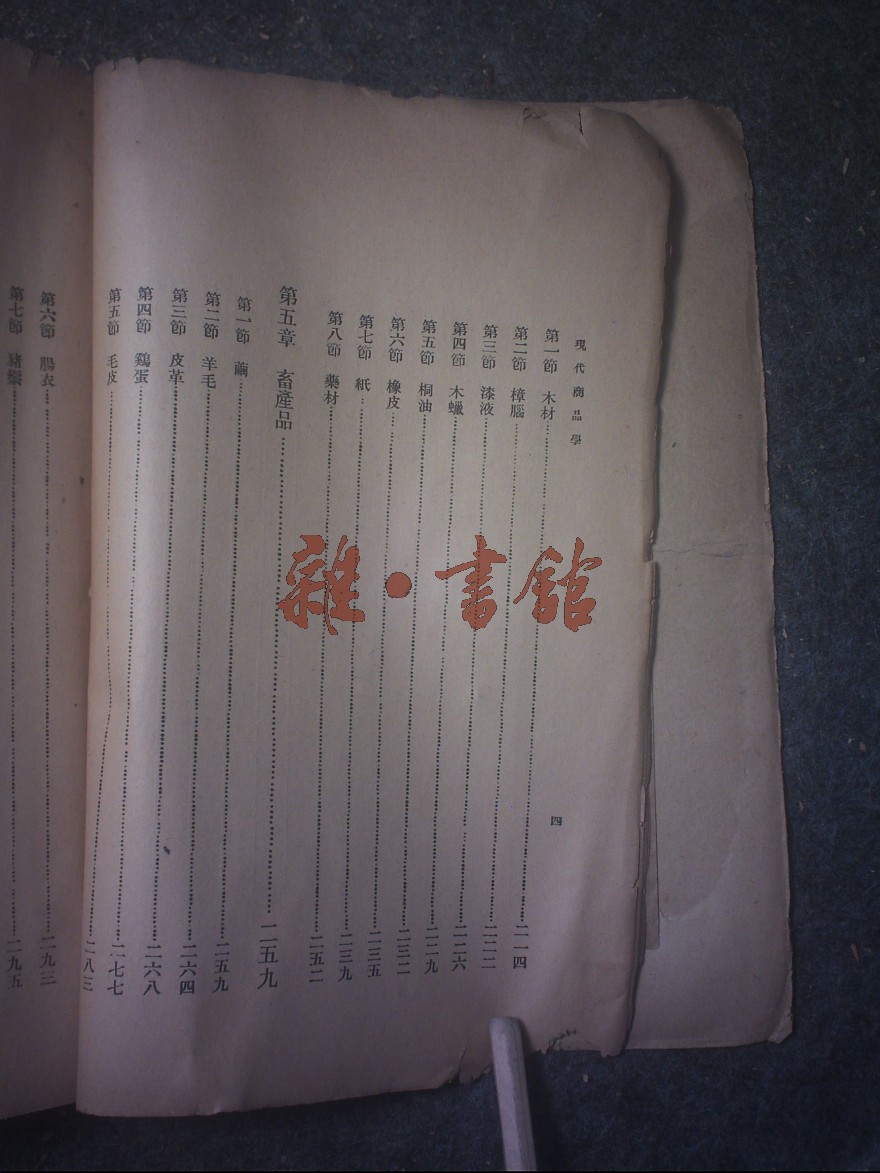 現代商品學
四
第一節 木材……二一四
第二節 樟腦……二二二
第三節 漆液……二二六
第四節 木蠟……二二九
第五節 桐油……二三二
第六節 橡皮……二三五
第七節 紙……二三九
第八節 藥材……二五二
第五章 畜產品……二五九
第一節 繭……二五九
第二節 羊毛……二六四
第三節 皮革……二六八
第四節 鷄蛋……二七七
第五節 毛皮……二八三
第六節 腸衣……二九三
第七節 豬鬃……二九五
雜·書館